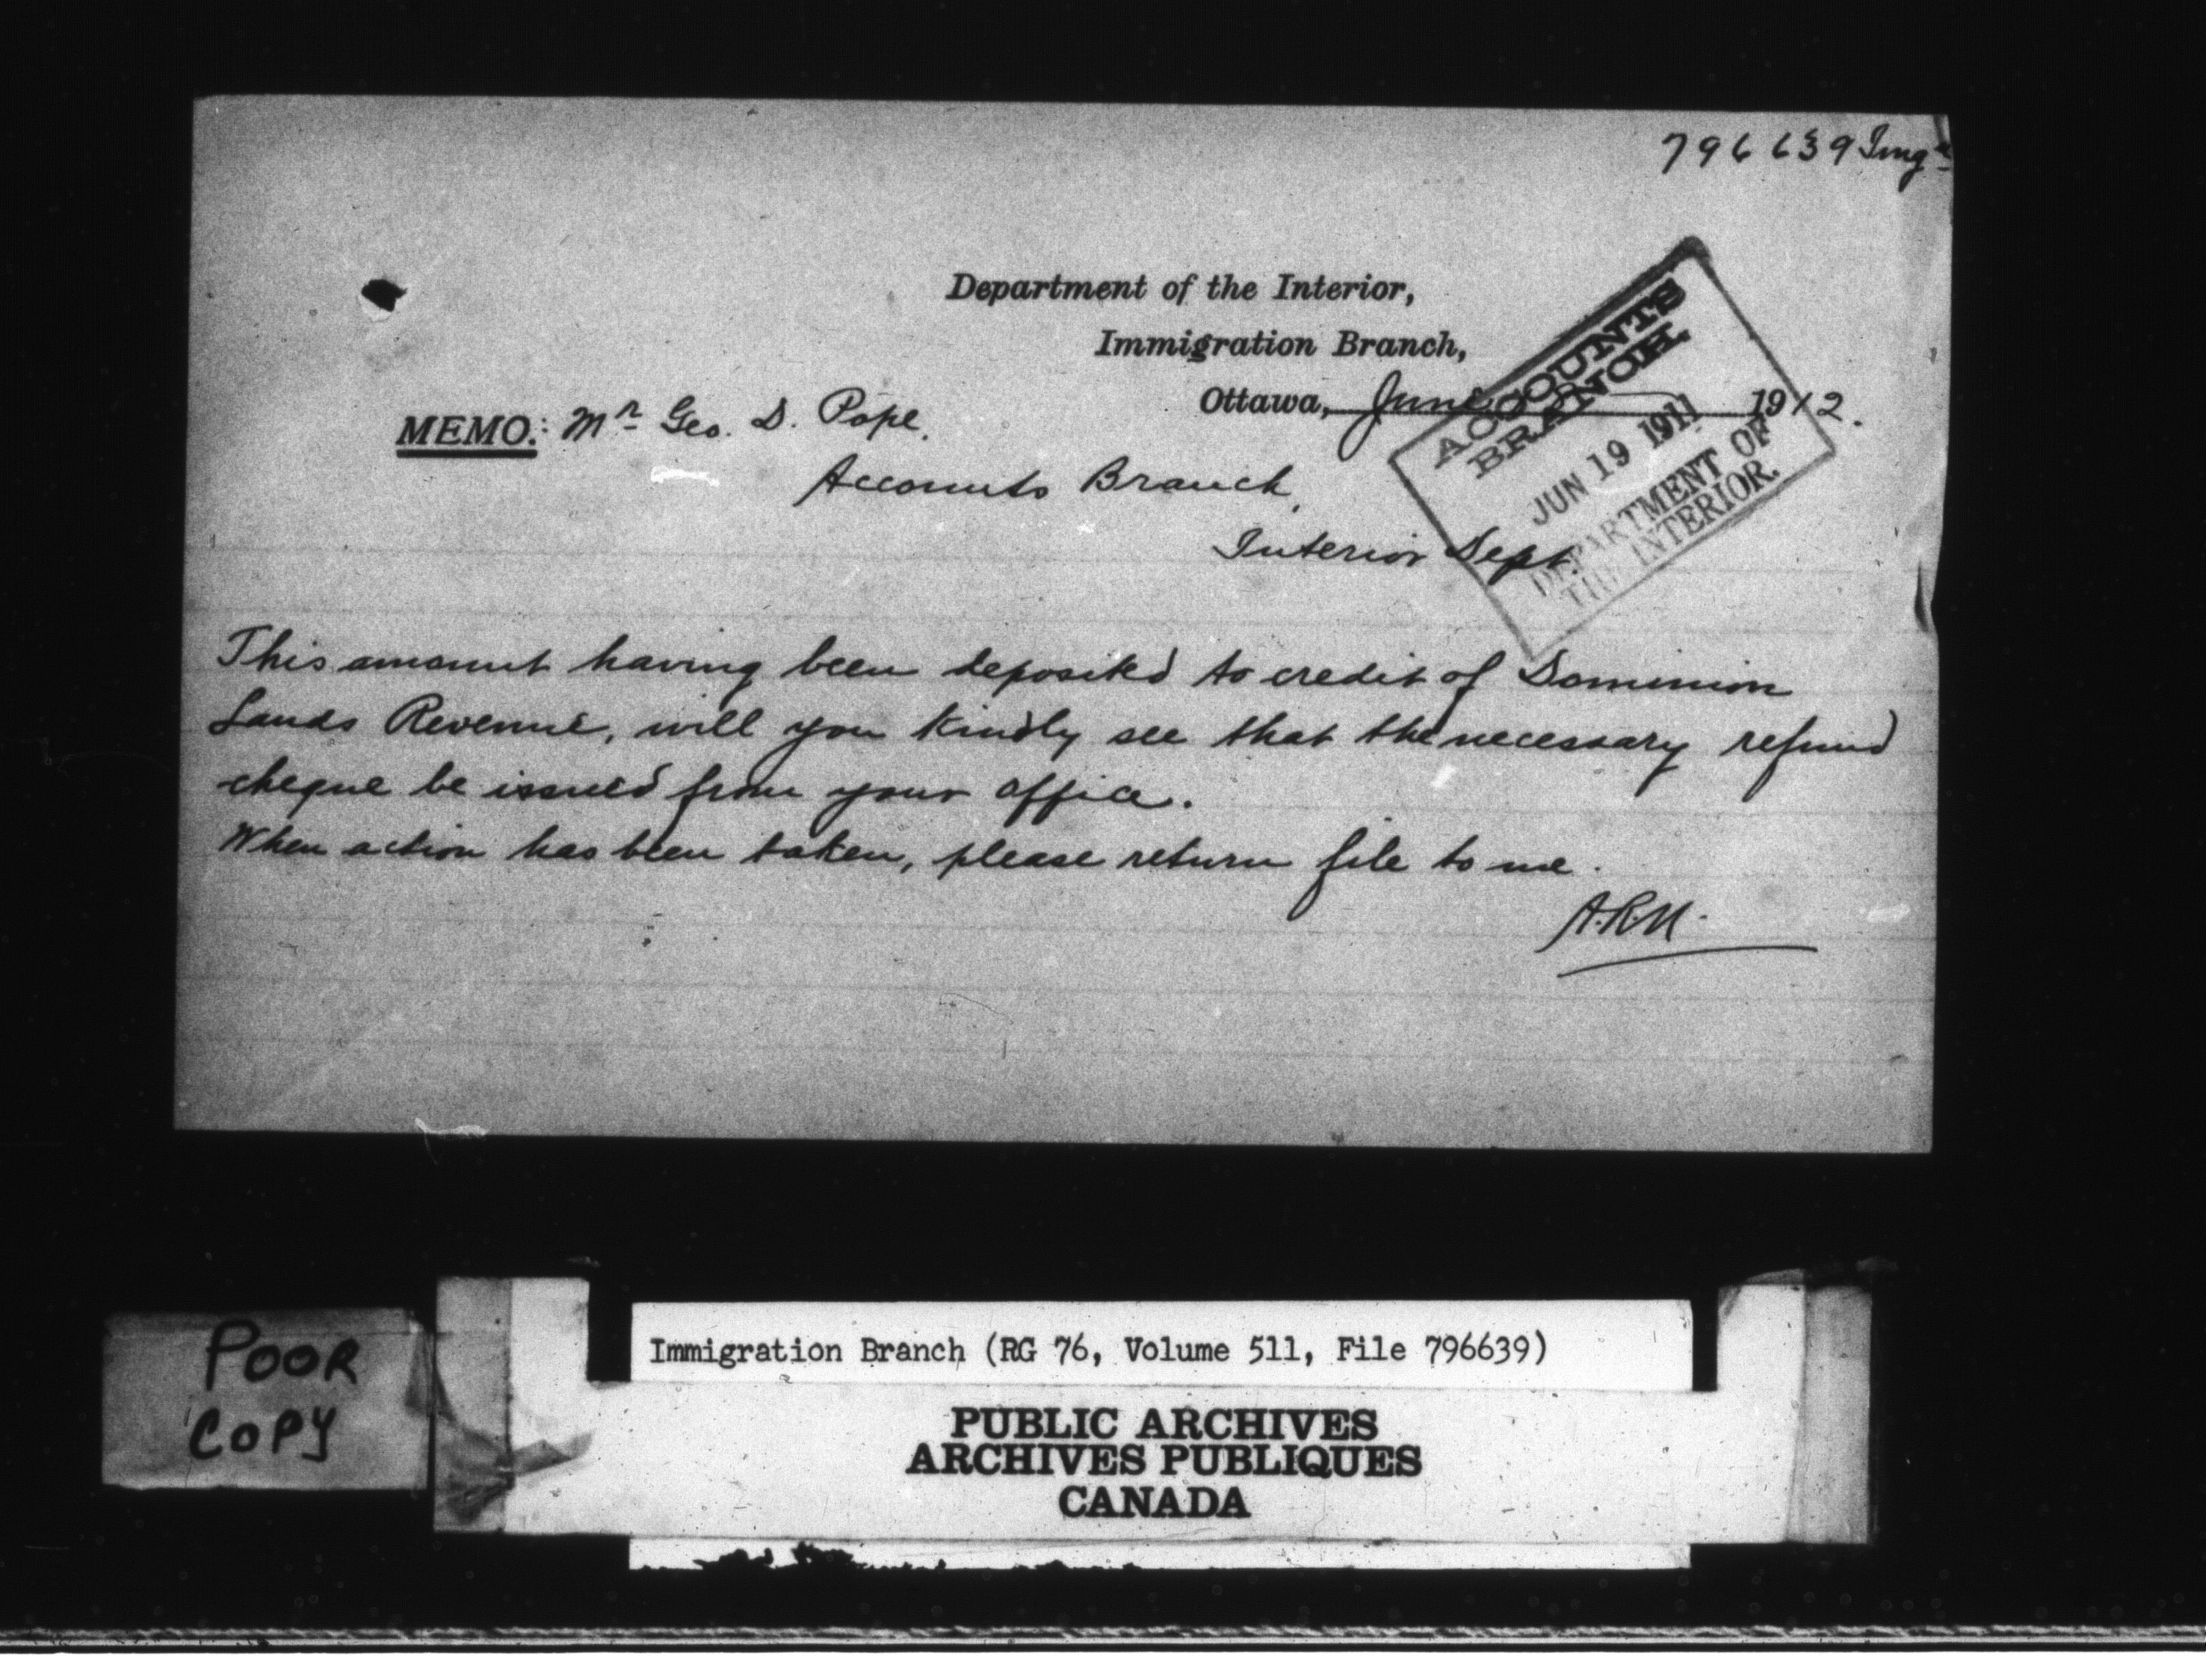 796639 Img^n
Department of the Interior,
Immigration Branch,
Ottawa, June 1912.
ACCOUNTS
BRANCH
JUN 19 1911
DEPARTMENT OF
THE INTERIOR.
MEMO.: Mr Geo. D. Pope.
Accounts Branch,
Interior Dept.
This amount having been deposited to credit of Dominion
Lands Revenue, will you kindly see that the necessary refund
cheque be issued from your office.
When action has been taken, please return file to me.
POOR
COPY
Immigration Branch (RG 76, Volume 511, File 796639)
PUBLIC ARCHIVES
ARCHIVES PUBLIQUES
CANADA